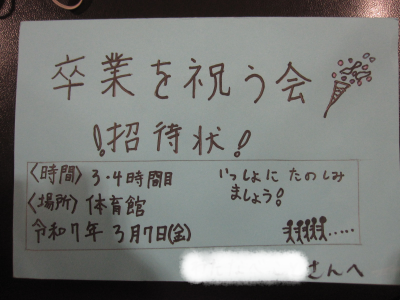 卒業を祝う会
！招待状！
〈時間〉 3・4時間目
〈場所〉 体育館
令和7年 3月7日(金)
いっしょに たのしみ
ましょう！
さんへ